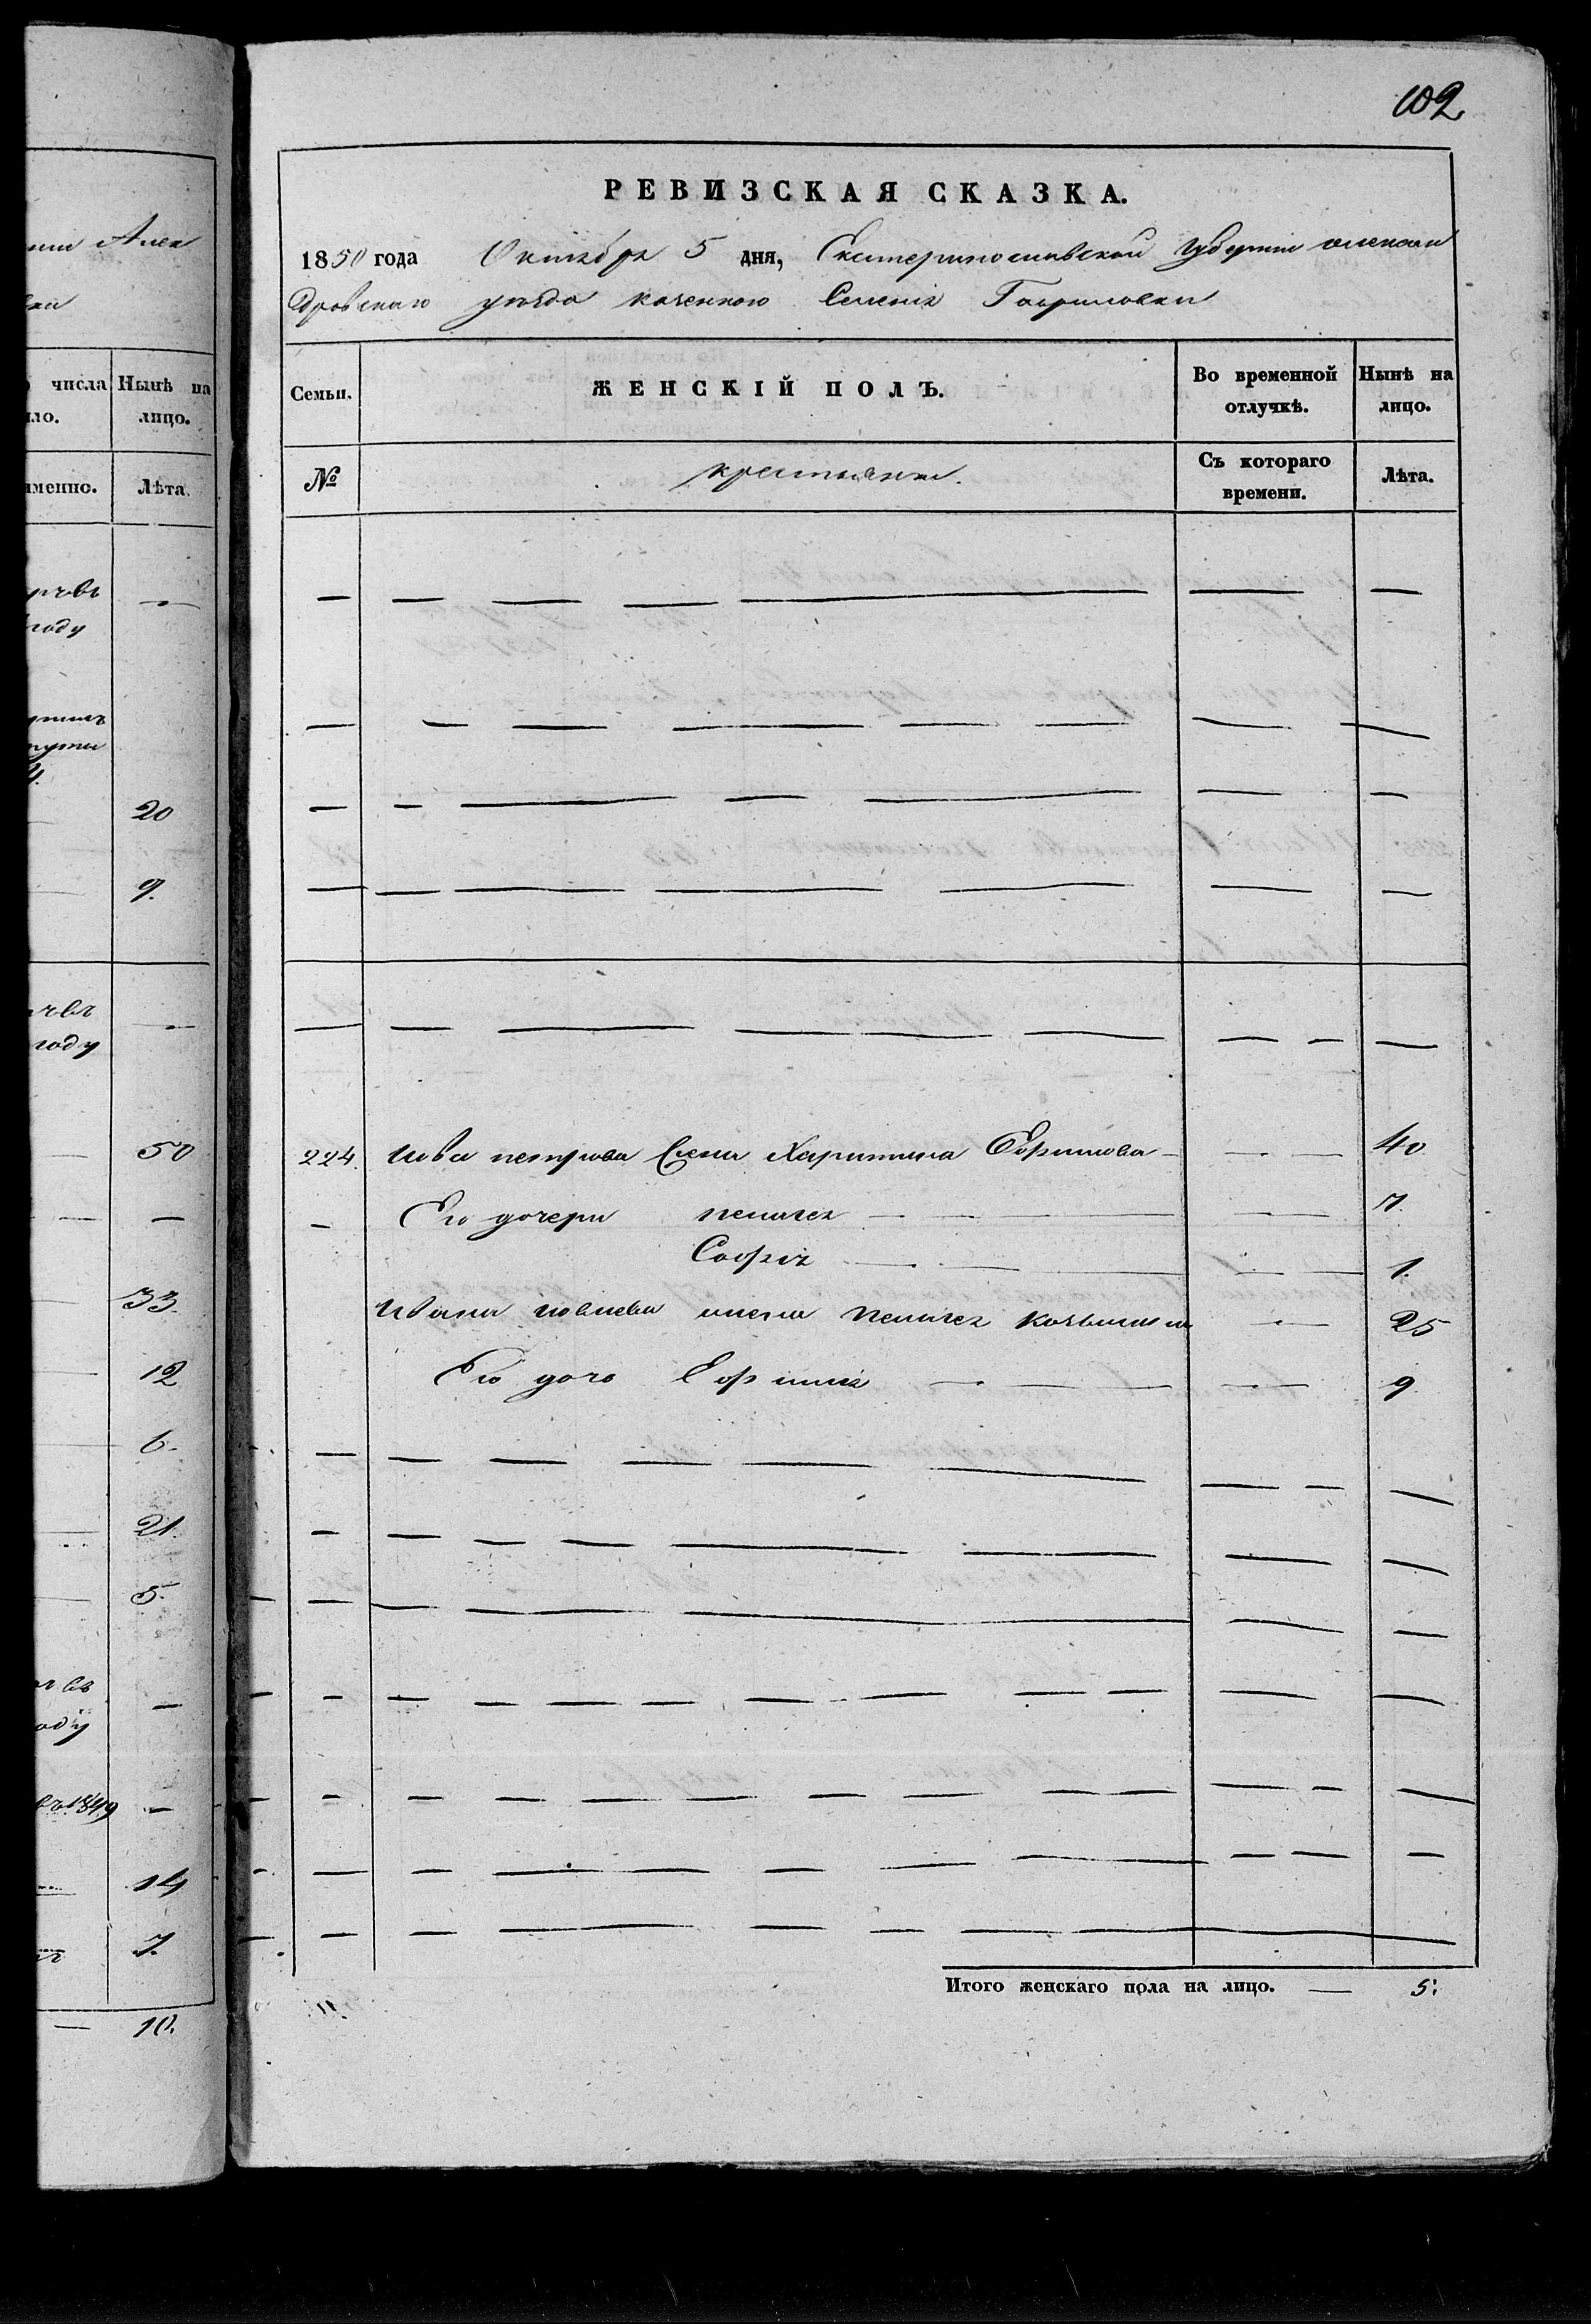 102
РЕВИЗСКАЯ СКАЗКА.
1850 года Октября 5 дня, Екатеринославской Губернии алексан
дровскаго уезда казенного Селения Гавриловки
Семьи. ЖЕНСКІЙ ПОЛЪ. Во временной отлучкѣ. Нынѣ на лицо.
№ крестьяне. Съ котораго времени. Лѣта.
224. иова петрова Ефимова 40
Его дочери пелагея 7.
София 1.
Ивана иовлева жена Пелагея 25
Его дочь Ефимия 9
Итого женскаго пола на лицо. — 5:
числа Нынѣ на
ло. лицо.
именно. Лѣта.
году
20
9.
году
50
33.
12
6.
21.
5.
въ 1849
14
7.
10.